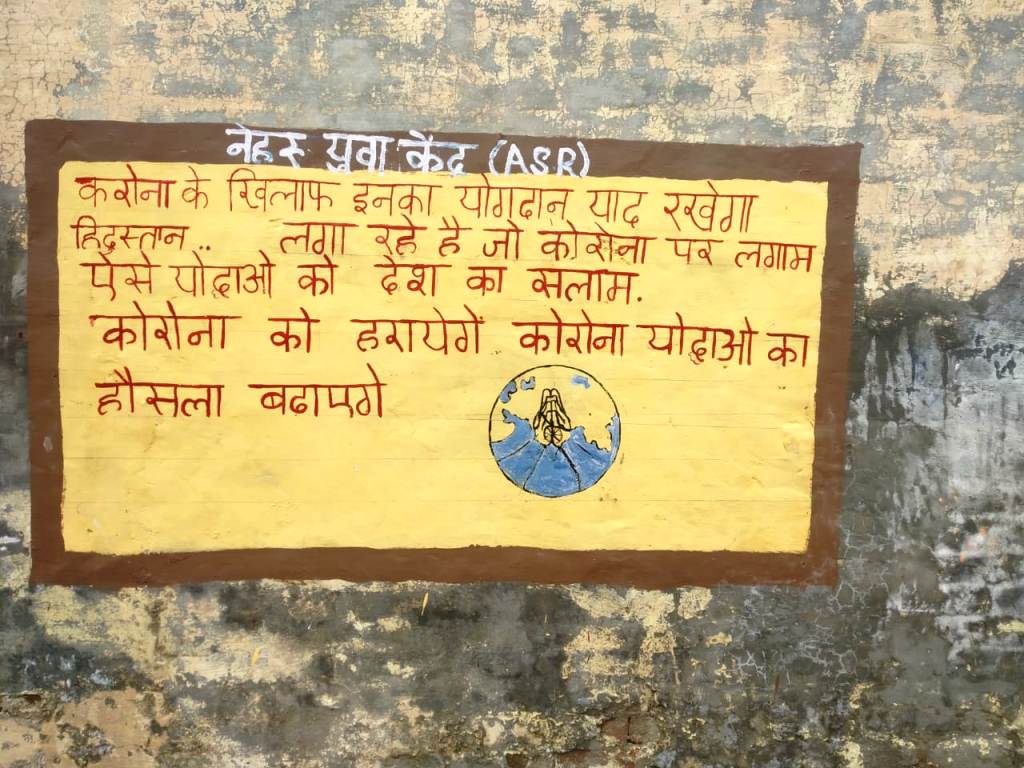 नेहरु युवा केंद्र (ASR)
करोना के खिलाफ इनका योगदान याद रखेगा
हिदुस्तान.. लगा रहे है जो कोरोना पर लगाम
ऐसे योद्धाओ को देश का सलाम.
कोरोना को हरायेगें कोरोना योद्धाओ का
हौसला बढाएगे